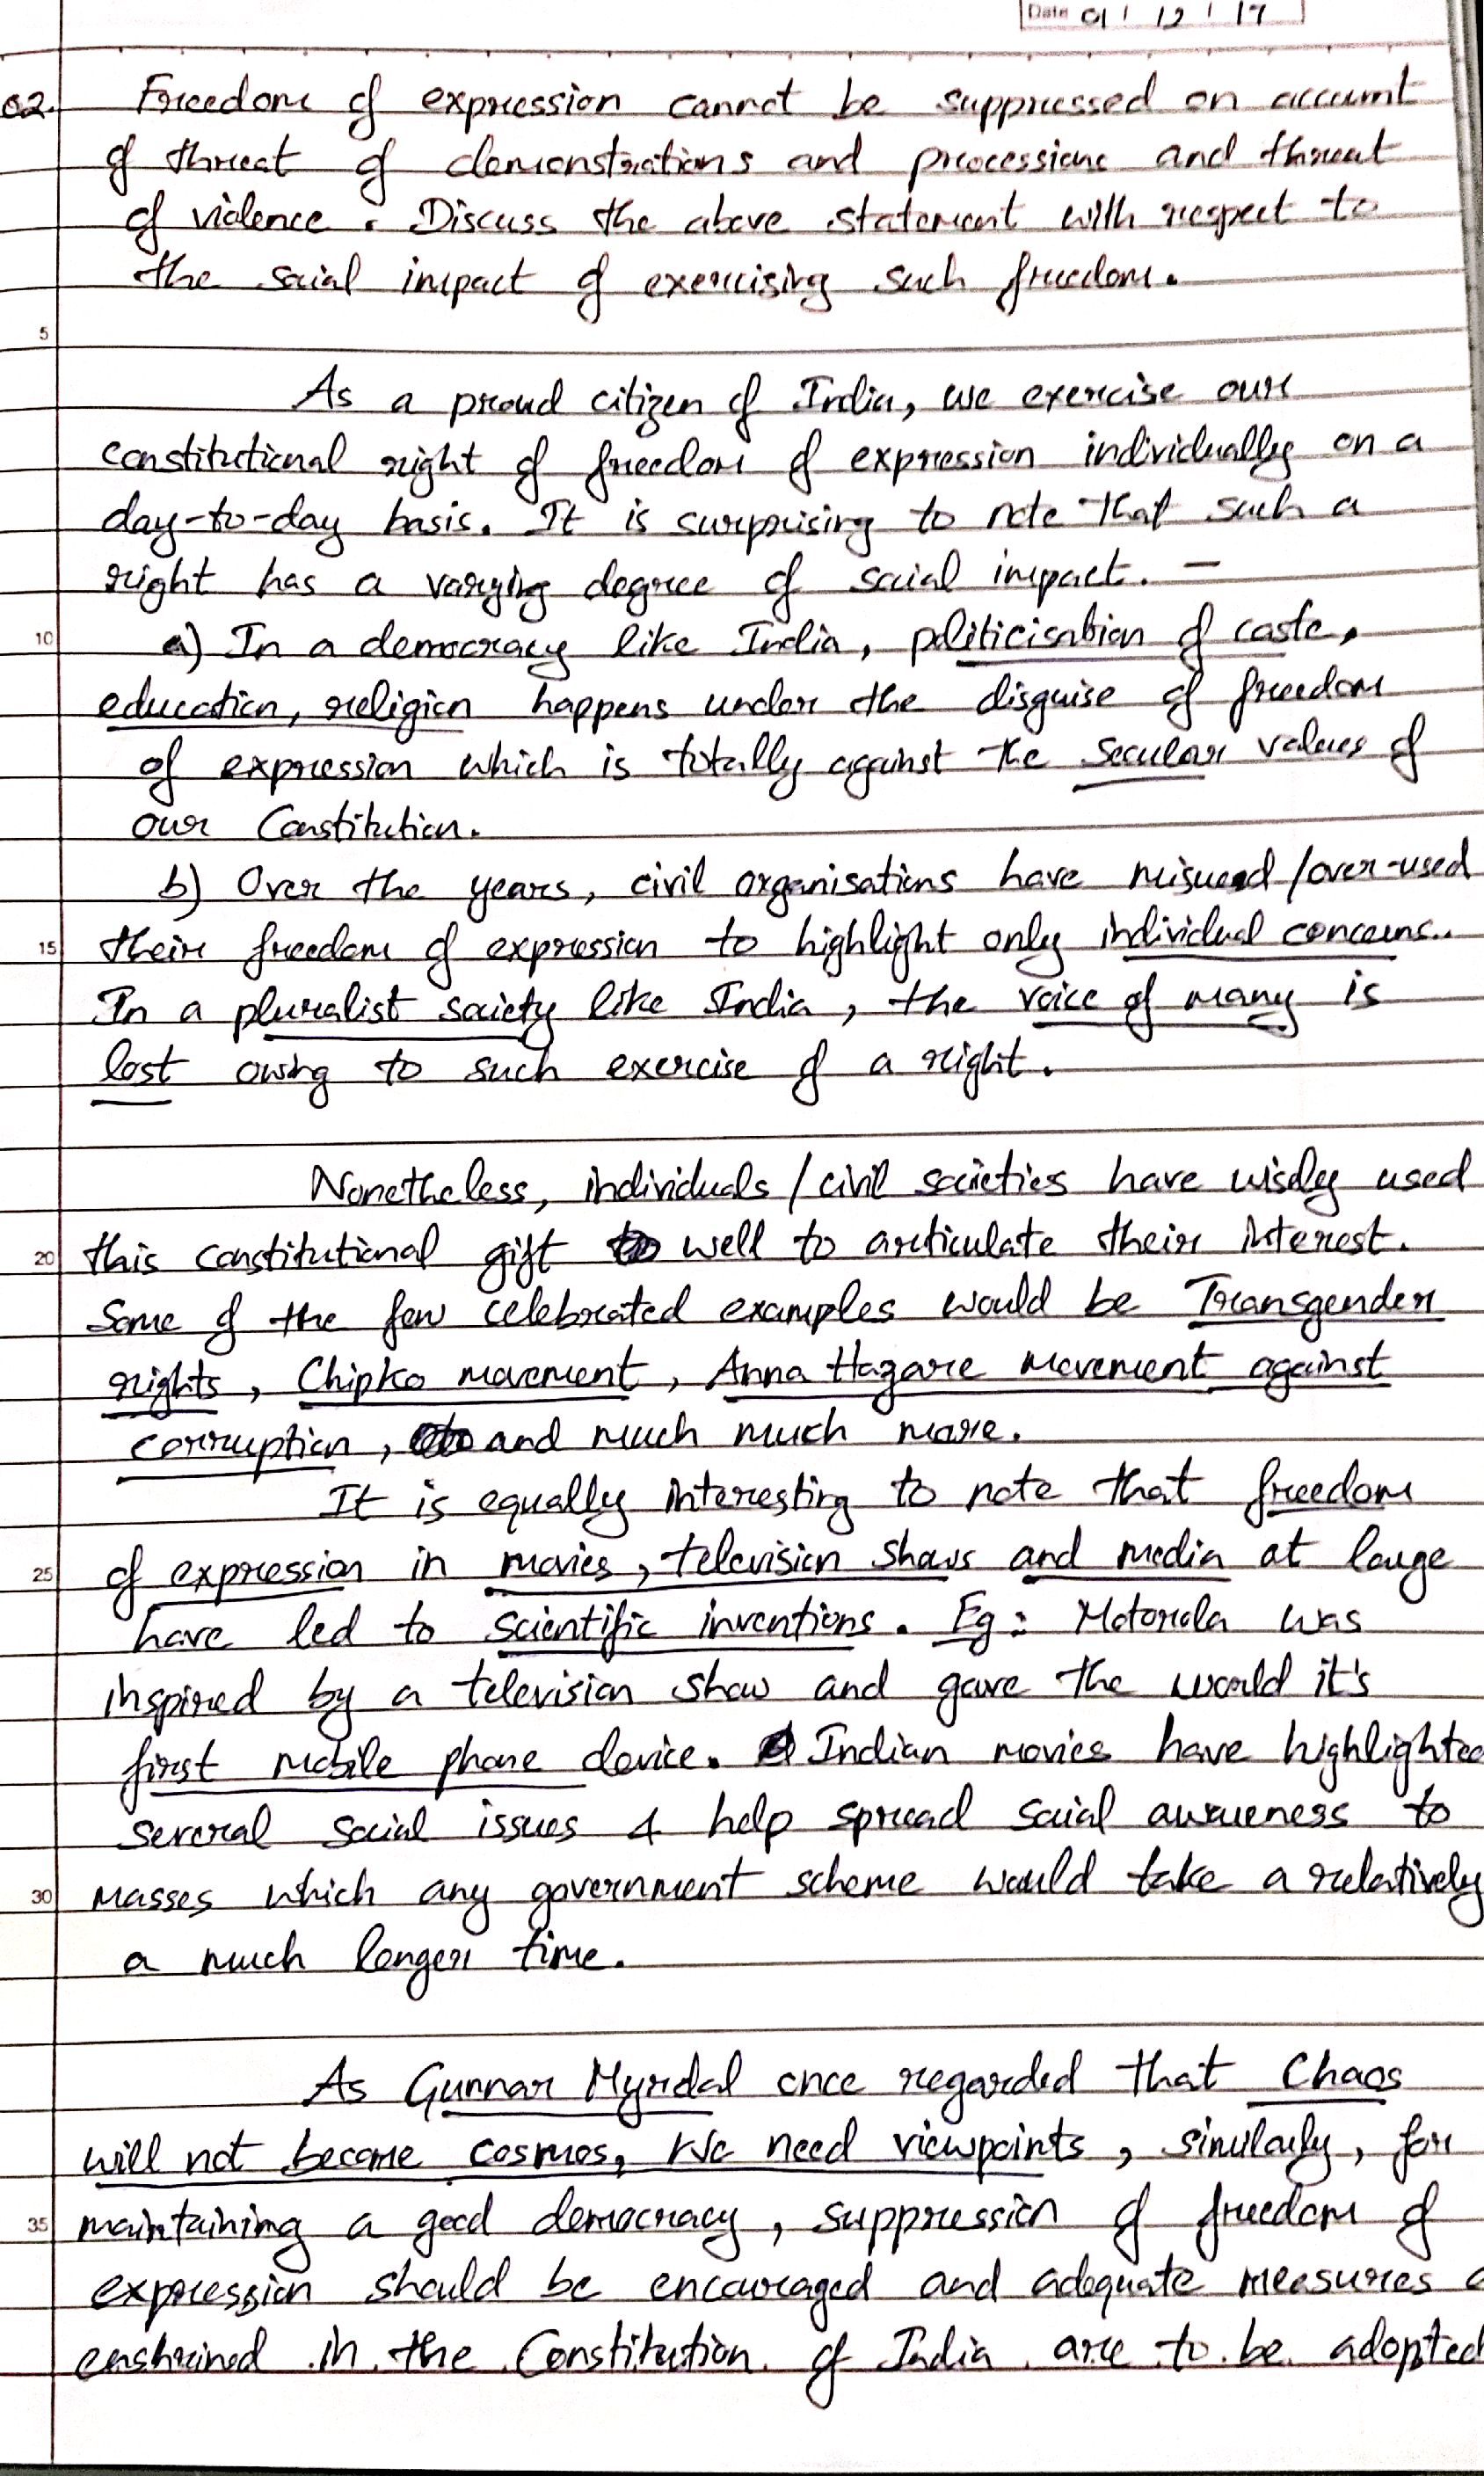 Date 01 / 12 / 17
02. Freedom of expression cannot be suppressed on account
of threat of demonstrations and processions and threat
of violence. Discuss the above statement with respect to
the social impact of exercising such freedom.
5
As a proud citizen of India, we exercise our
constitutional right of freedom of expression individually on a
day-to-day basis. It is surprising to note that such a
right has a varying degree of social impact. –
10 a) In a democracy like India, politicisation of caste,
education, religion happens under the disguise of freedom
of expression which is totally against the secular values of
our Constitution.
b) Over the years, civil organisations have misused /over-used
15 their freedom of expression to highlight only individual concerns..
In a pluralist society like India, the voice of many is
lost owing to such exercise of a right.
Nonetheless, individuals / civil societies have wisely used
20 this constitutional gift well to articulate their interest.
Some of the few celebrated examples would be Transgender
rights, Chipko movement, Anna Hazare movement against
corruption, and much much more.
It is equally interesting to note that freedom
25 of expression in movies, television shows and media at large
have led to scientific inventions. Eg: Motorola was
inspired by a television show and gave the world it's
first mobile phone device. Indian movies have highlighted
several social issues & help spread social awareness to
30 masses which any government scheme would take a relatively
a much longer time.
As Gunnar Myrdal once regarded that Chaos
will not become cosmos, We need viewpoints, similarly, for
35 maintaining a good democracy, suppression of freedom of
expression should be encouraged and adequate measures
enshrined in the Constitution of India are to be adopted